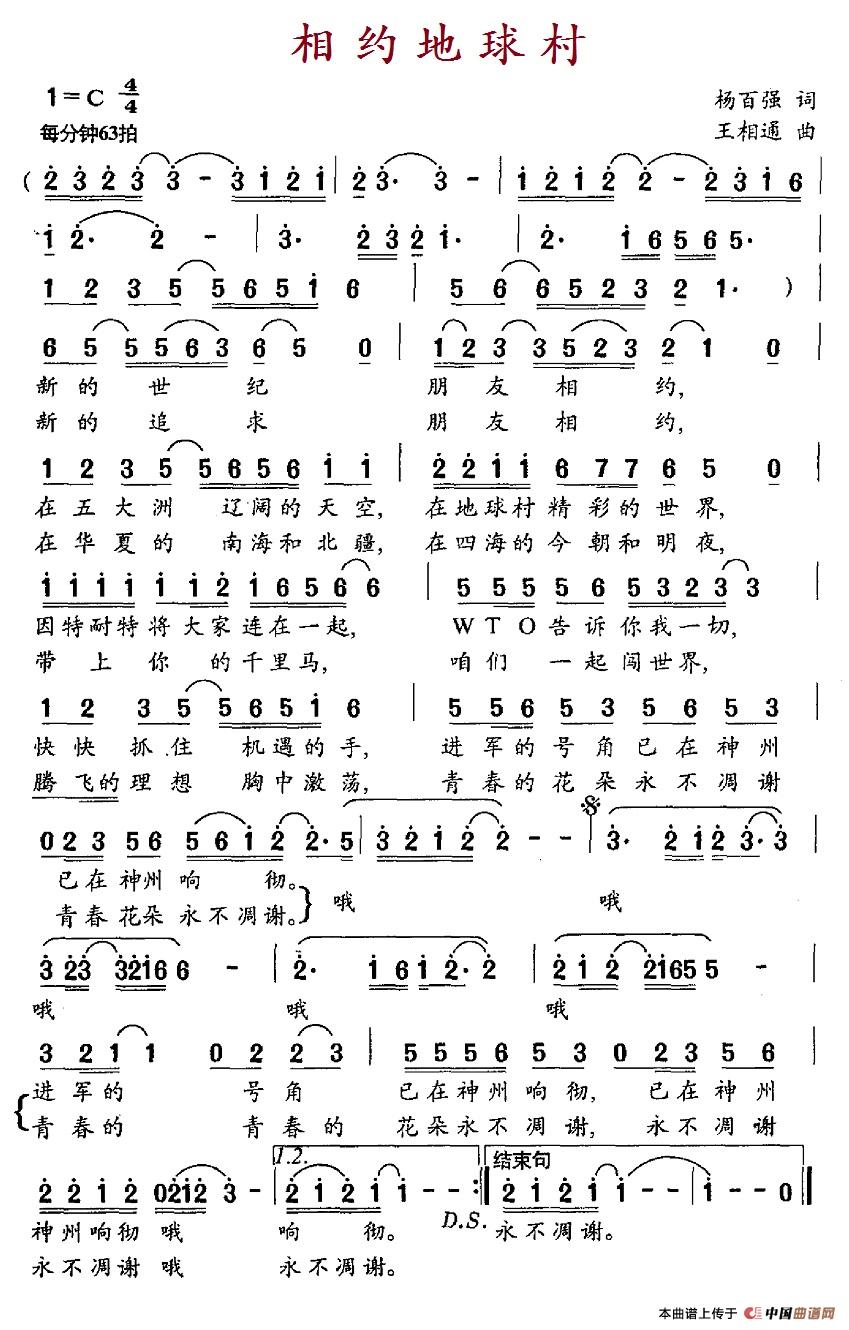 相约地球村
1=C 4/4
杨百强 词
每分钟63拍
王相通 曲
( 2 3 2 3 3 - 3 1 2 1 | 2 3· 3 - | 1 2 1 2 2 - 2 3 1 6 |
1 2· 2 - | 3· 2 3 2 1· | 2· 1 6 5 6 5· |
1 2 3 5 5 6 5 1 6 | 5 6 6 5 2 3 2 1· ) |
6 5 5 5 6 3 6 5 0 | 1 2 3 3 5 2 3 2 1 0 |
新的世纪 朋友相约,
新的追求 朋友相约,
1 2 3 5 5 6 5 6 1 1 | 2 2 1 1 6 7 7 6 5 0 |
在五大洲 辽阔的天空, 在地球村精彩的世界,
在华夏的 南海和北疆, 在四海的今朝和明夜,
1 1 1 1 1 1 2 1 6 5 6 6 | 5 5 5 5 6 5 3 2 3 3 |
因特耐特将大家连在一起, WTO告诉你我一切,
带上你的千里马, 咱们一起闯世界,
1 2 3 5 5 6 5 1 6 | 5 5 6 5 3 5 6 5 3 |
快快抓住 机遇的手, 进军的号角已在神州
腾飞的理想 胸中激荡, 青春的花朵永不凋谢
0 2 3 5 6 5 6 1 2 2· 5 | 3 2 1 2 2 - - | 3· 2 1 2 3· 3 |
已在神州响彻。
青春花朵永不凋谢。} 哦 哦
3 2 3 3 2 1 6 6 - | 2· 1 6 1 2· 2 | 2 1 2 2 1 6 5 5 - |
哦 哦 哦
3 2 1 1 1 0 2 2 3 | 5 5 5 6 5 3 0 2 3 5 6 |
进军的 号角 已在神州响彻, 已在神州
青春的 青春的 花朵永不凋谢, 永不凋谢
1.2. 结束句
2 2 1 2 0 2 1 2 3 - | 2 1 2 1 1 - - :‖ 2 1 2 1 1 - - | 1 - - 0 ‖
D.S.
神州响彻哦 响彻。 永不凋谢。
永不凋谢哦 永不凋谢。
本曲谱上传于 中国曲谱网